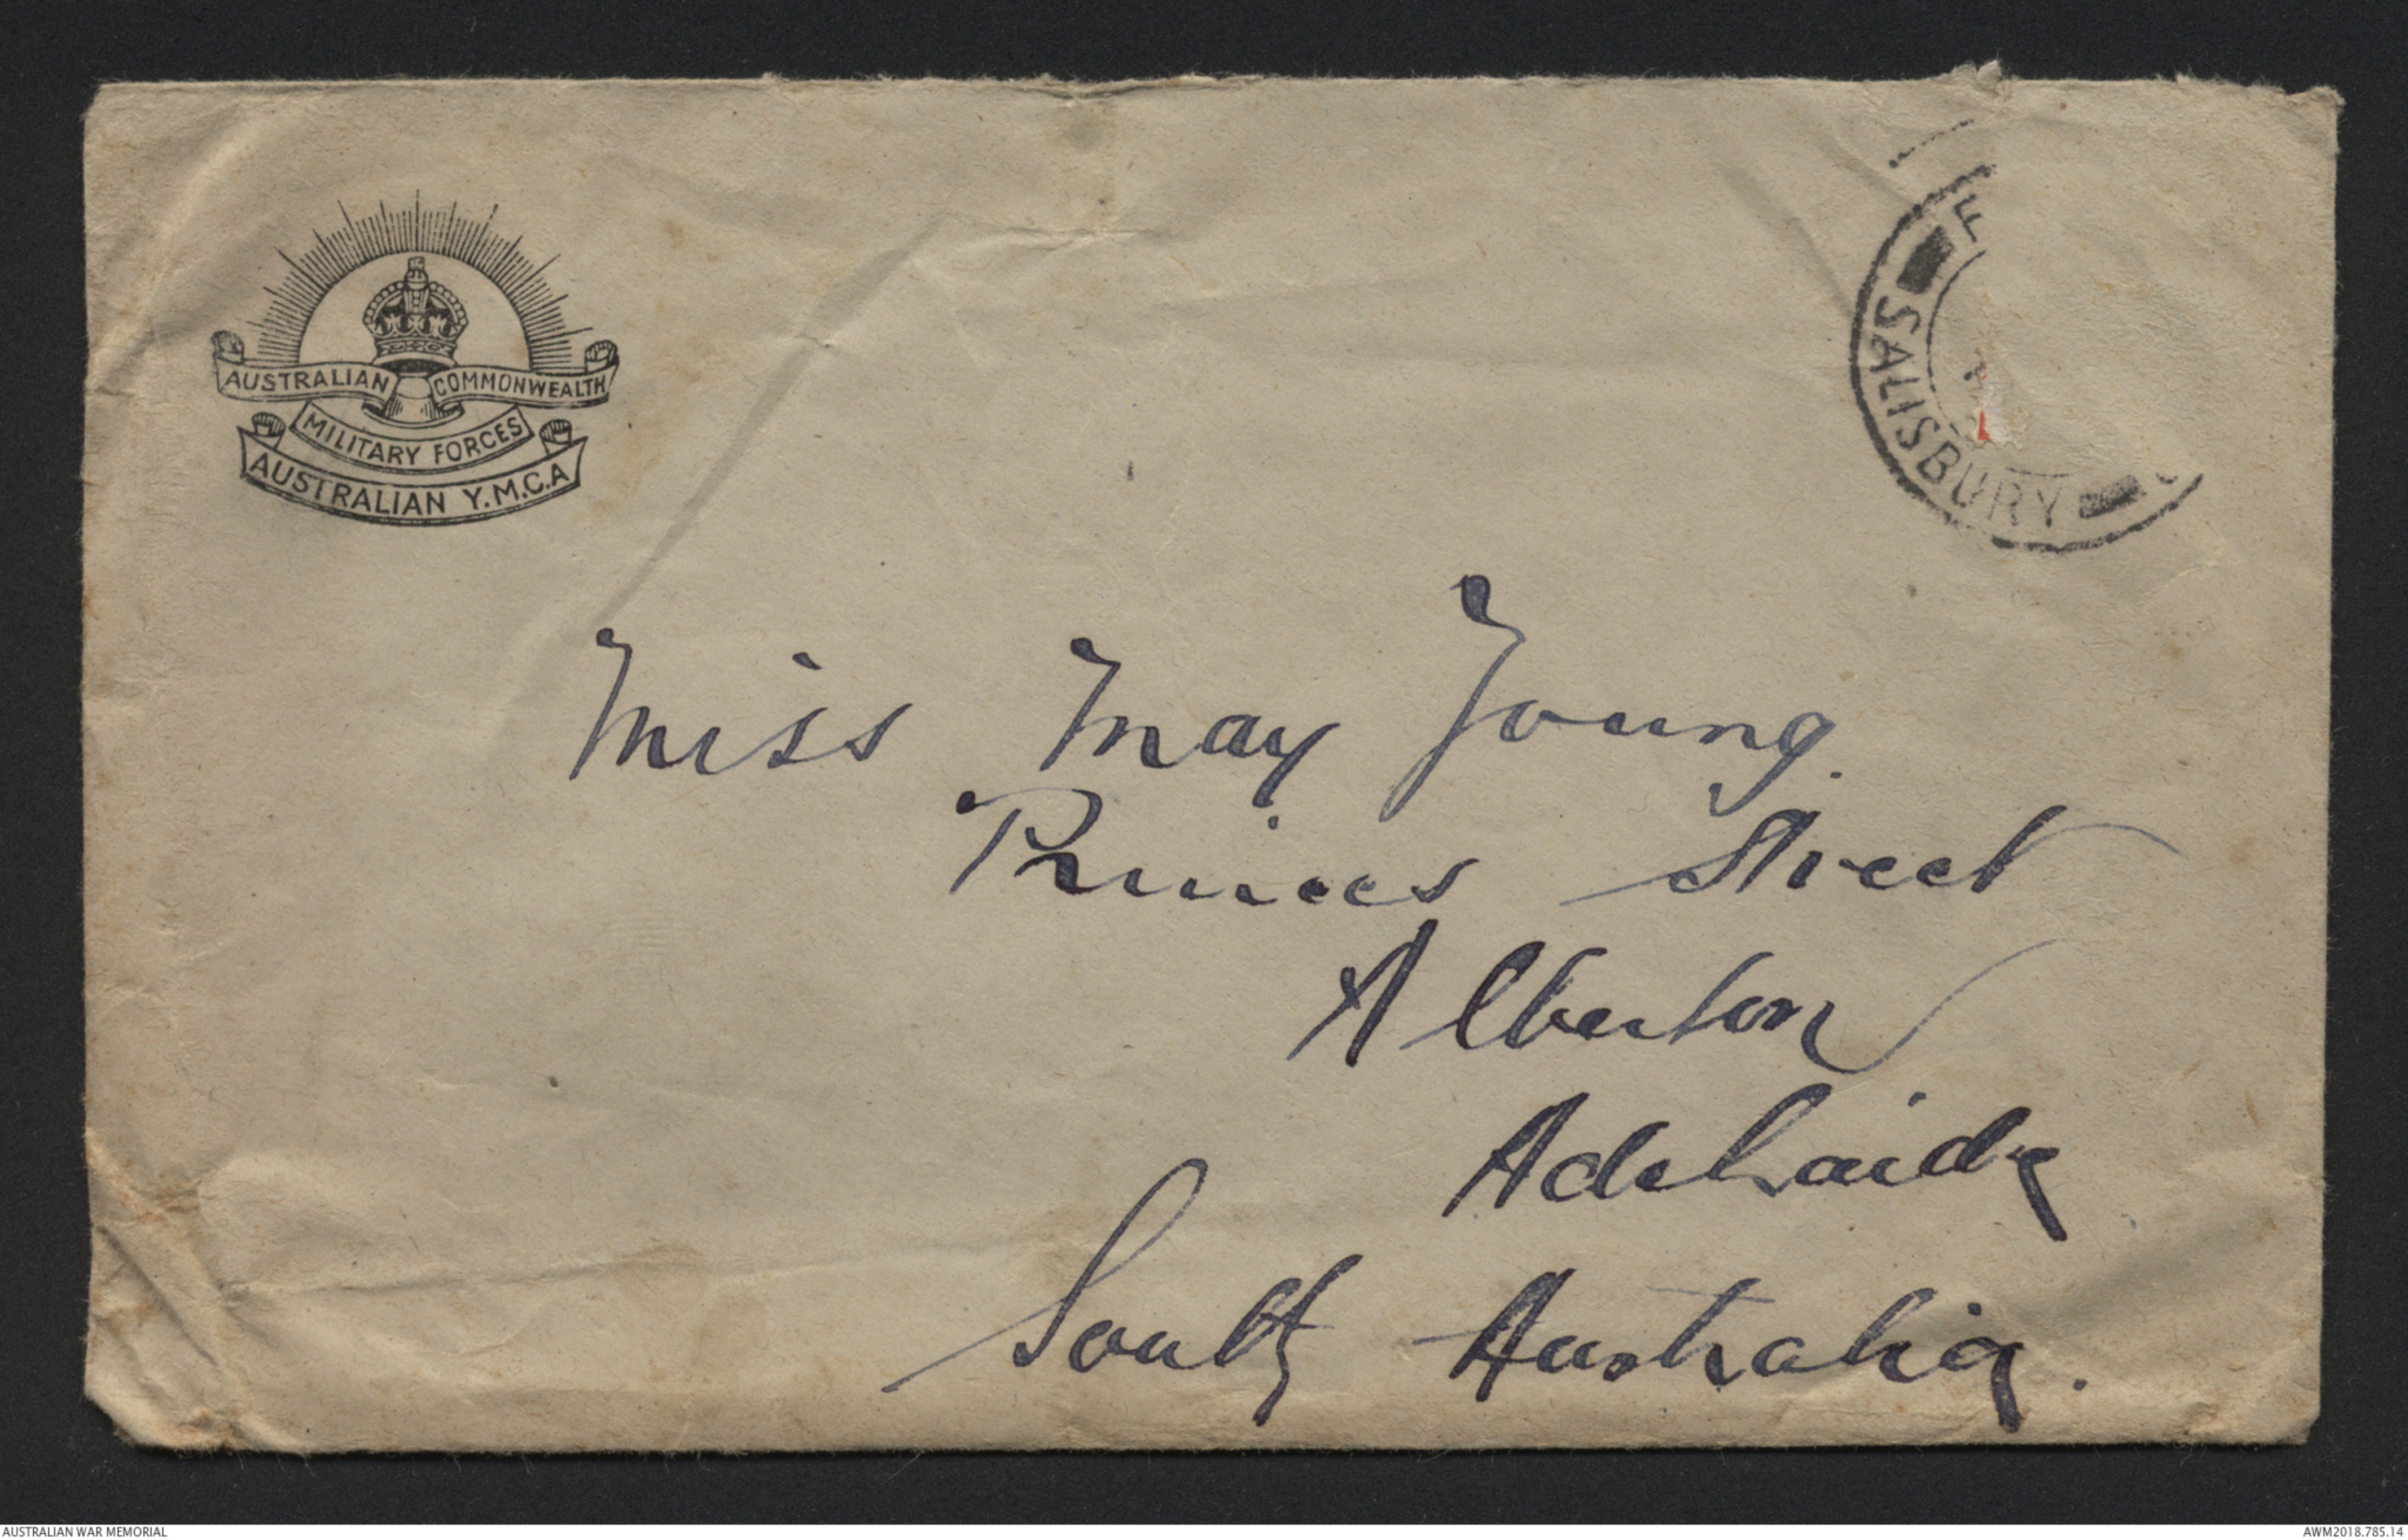 AUSTRALIAN COMMONWEALTH
MILITARY FORCES
AUSTRALIAN Y.M.C.A
F
SALISBURY
Miss May Young.
Princes Street
Alberton
Adelaide
South Australia.
AUSTRALIAN WAR MEMORIAL
AWM2018.785.14